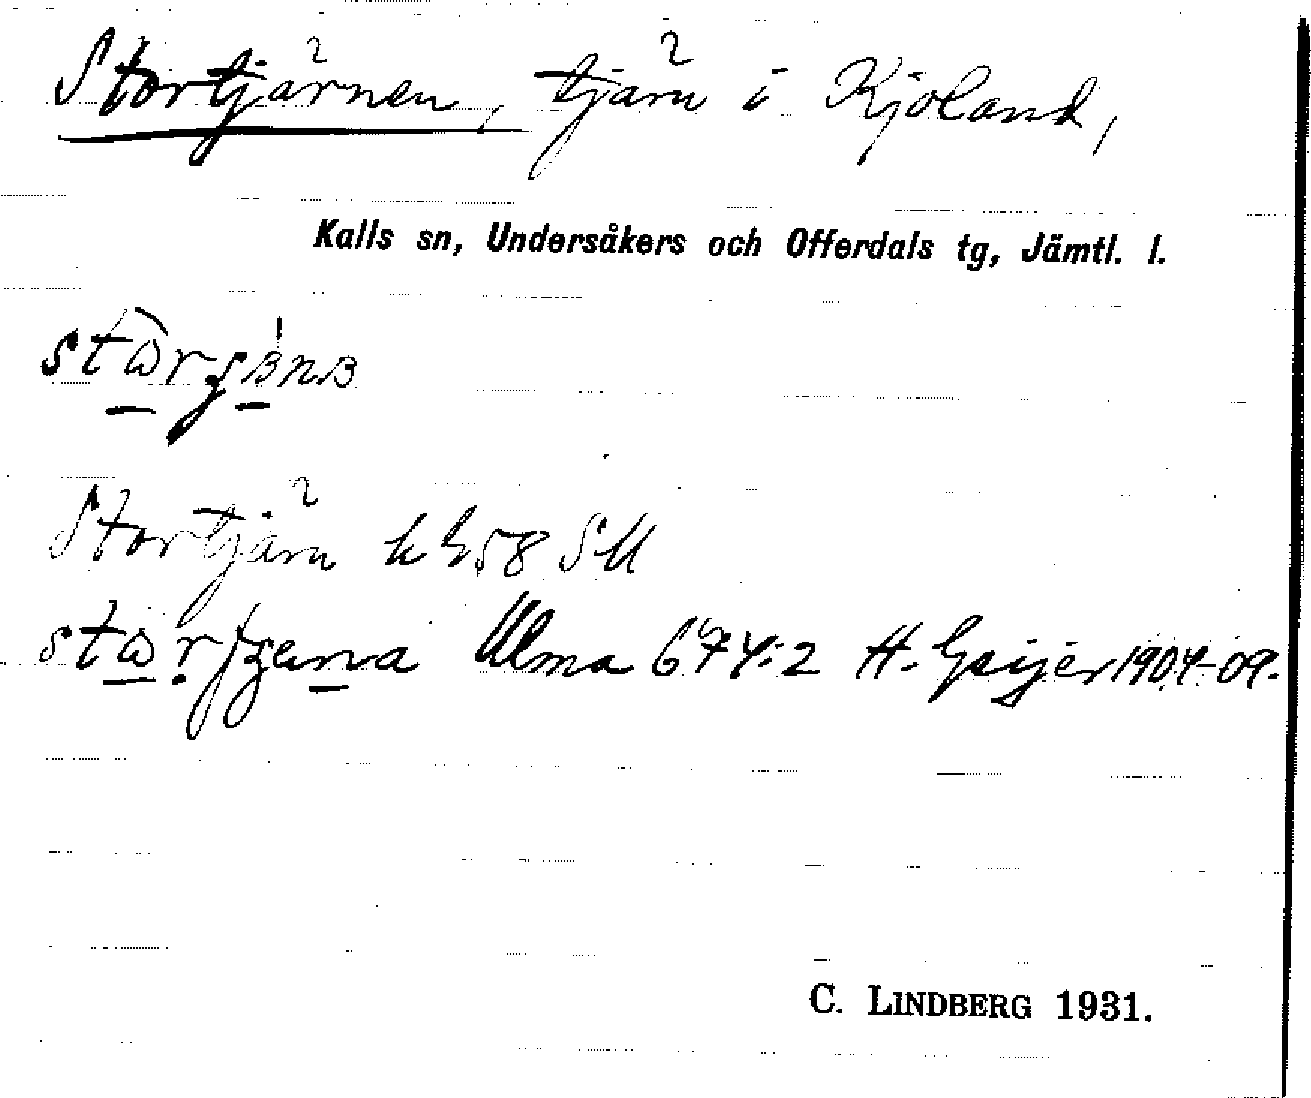 Stortjärnen, tjärn i Kjoland,
Kalls sn, Undersåkers och Offerdals tg, Jämtl. l.
Stortjärn k G58 SU
Ulma 674:2 H. Geijer 1904-09.
C. LINDBERG 1931.